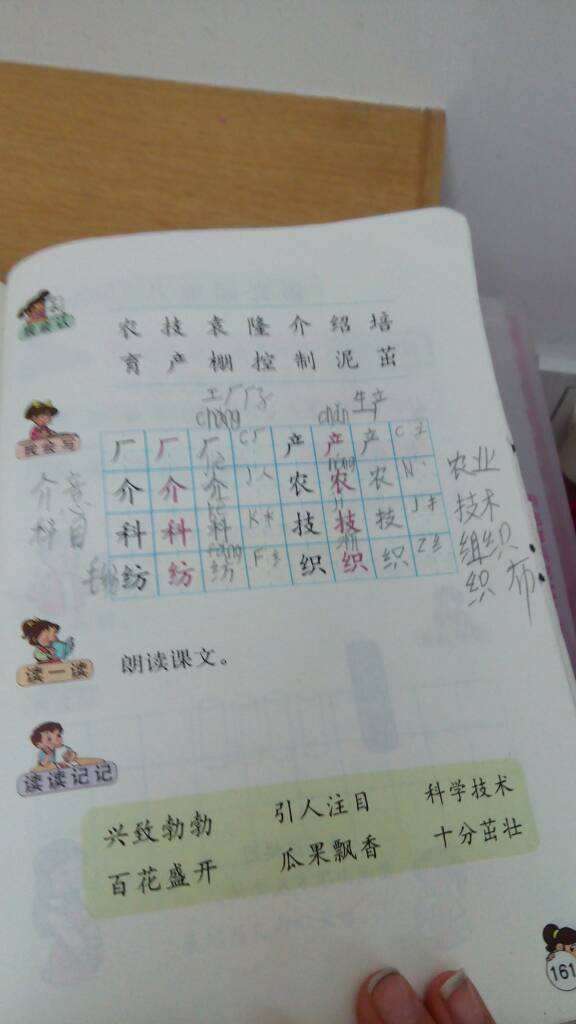 我会认
农 技 袁 隆 介 绍 培
育 产 棚 控 制 泥 茁
工厂 生产
chǎng chǎn
我会写
厂 厂 厂 C 厂 产 产 产 C 立
介意 介 介 介 J 人 农 农 农 N 农业
科目 科 科 科 K 禾 技 技 技 J 扌 技术
纺 纺 纺 F 纟 织 织 织 Z 纟 组织
织布
读一读
朗读课文。
读读记记
兴致勃勃 引人注目 科学技术
百花盛开 瓜果飘香 十分茁壮
161